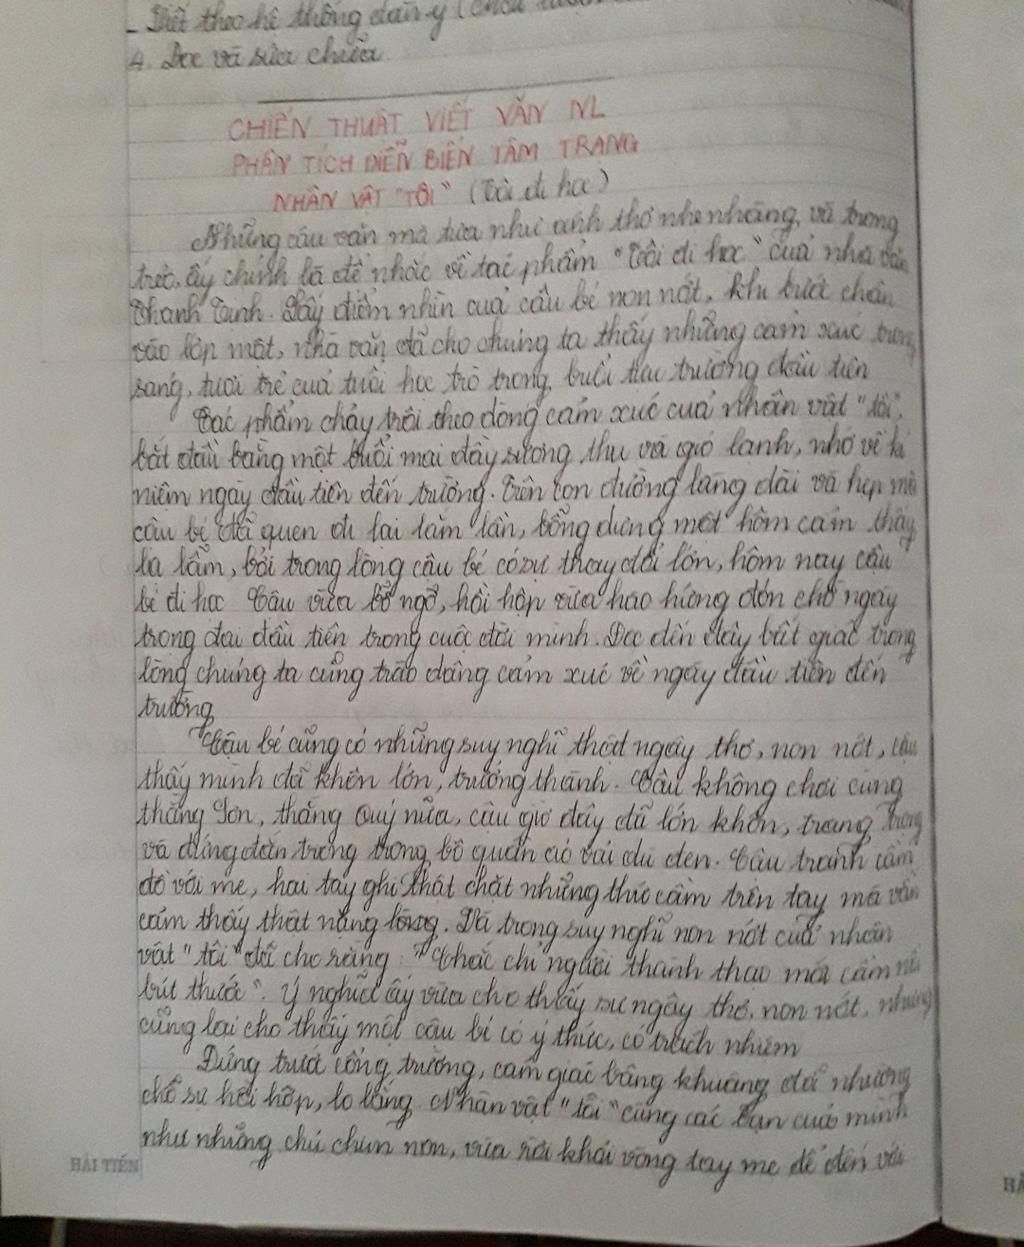 - Viết theo hệ thống dàn ý
4. Đọc và sửa chữa
CHIẾN THUẬT VIẾT VĂN NL
PHÂN TÍCH DIỄN BIẾN TÂM TRẠNG
NHÂN VẬT "TÔI" (Tôi đi học)
Những câu văn mà tựa như cánh thơ nhẹ nhàng, và trong
trẻo, ấy chính là để nhắc về tác phẩm "Tôi đi học" của nhà văn
Thanh Tịnh. Lấy điểm nhìn của cậu bé non nớt, khi bước chân
vào lớp một, nhà văn đã cho chúng ta thấy những cảm xúc trong
sáng, tươi trẻ của tuổi học trò trong buổi tựu trường đầu tiên
Tác phẩm chảy trôi theo dòng cảm xúc của nhân vật "tôi",
bắt đầu bằng một buổi mai đầy sương thu và gió lạnh, nhớ về kỉ
niệm ngày đầu tiên đến trường. Trên con đường làng dài và hẹp mà
cậu bé đã quen đi lại lắm lần, bỗng dưng một hôm cảm thấy
lạ lẫm, bởi trong lòng cậu bé có sự thay đổi lớn, hôm nay cậu
bé đi học Cậu vừa bỡ ngỡ, hồi hộp vừa háo hứng đón chờ ngày
trọng đại đầu tiên trong cuộc đời mình. Đọc đến đây bất giác trong
lòng chúng ta cũng trào dâng cảm xúc về ngày đầu tiên đến
trường
Cậu bé cũng có những suy nghĩ thật ngây thơ, non nớt, cậu
thấy mình đã khôn lớn, trưởng thành. Cậu không chơi cùng
thằng Sơn, thằng Quý nữa, cậu giờ đây đã lớn khôn, trang trọng
và đứng đắn trong bộ quần áo vải dù đen. Cậu tranh cầm
đồ với mẹ, hai tay ghì thật chặt những thứ cầm trên tay mà vẫn
cảm thấy thật nặng. Và trong suy nghĩ non nớt của nhân
vật "tôi" đã cho rằng: "Chắc chỉ người thành thạo mới cầm nổi
bút thước". Ý nghĩ ấy vừa cho thấy sự ngây thơ, non nớt, nhưng
cũng lại cho thấy một cậu bé có ý thức, có trách nhiệm
Đứng trước cổng trường, cảm giác bâng khuâng đã nhường
chỗ sự hồi hộp, lo lắng. Nhân vật "tôi" cùng các bạn của mình
như những chú chim non, vừa rời khỏi vòng tay mẹ để đến với
HẢI TIẾN